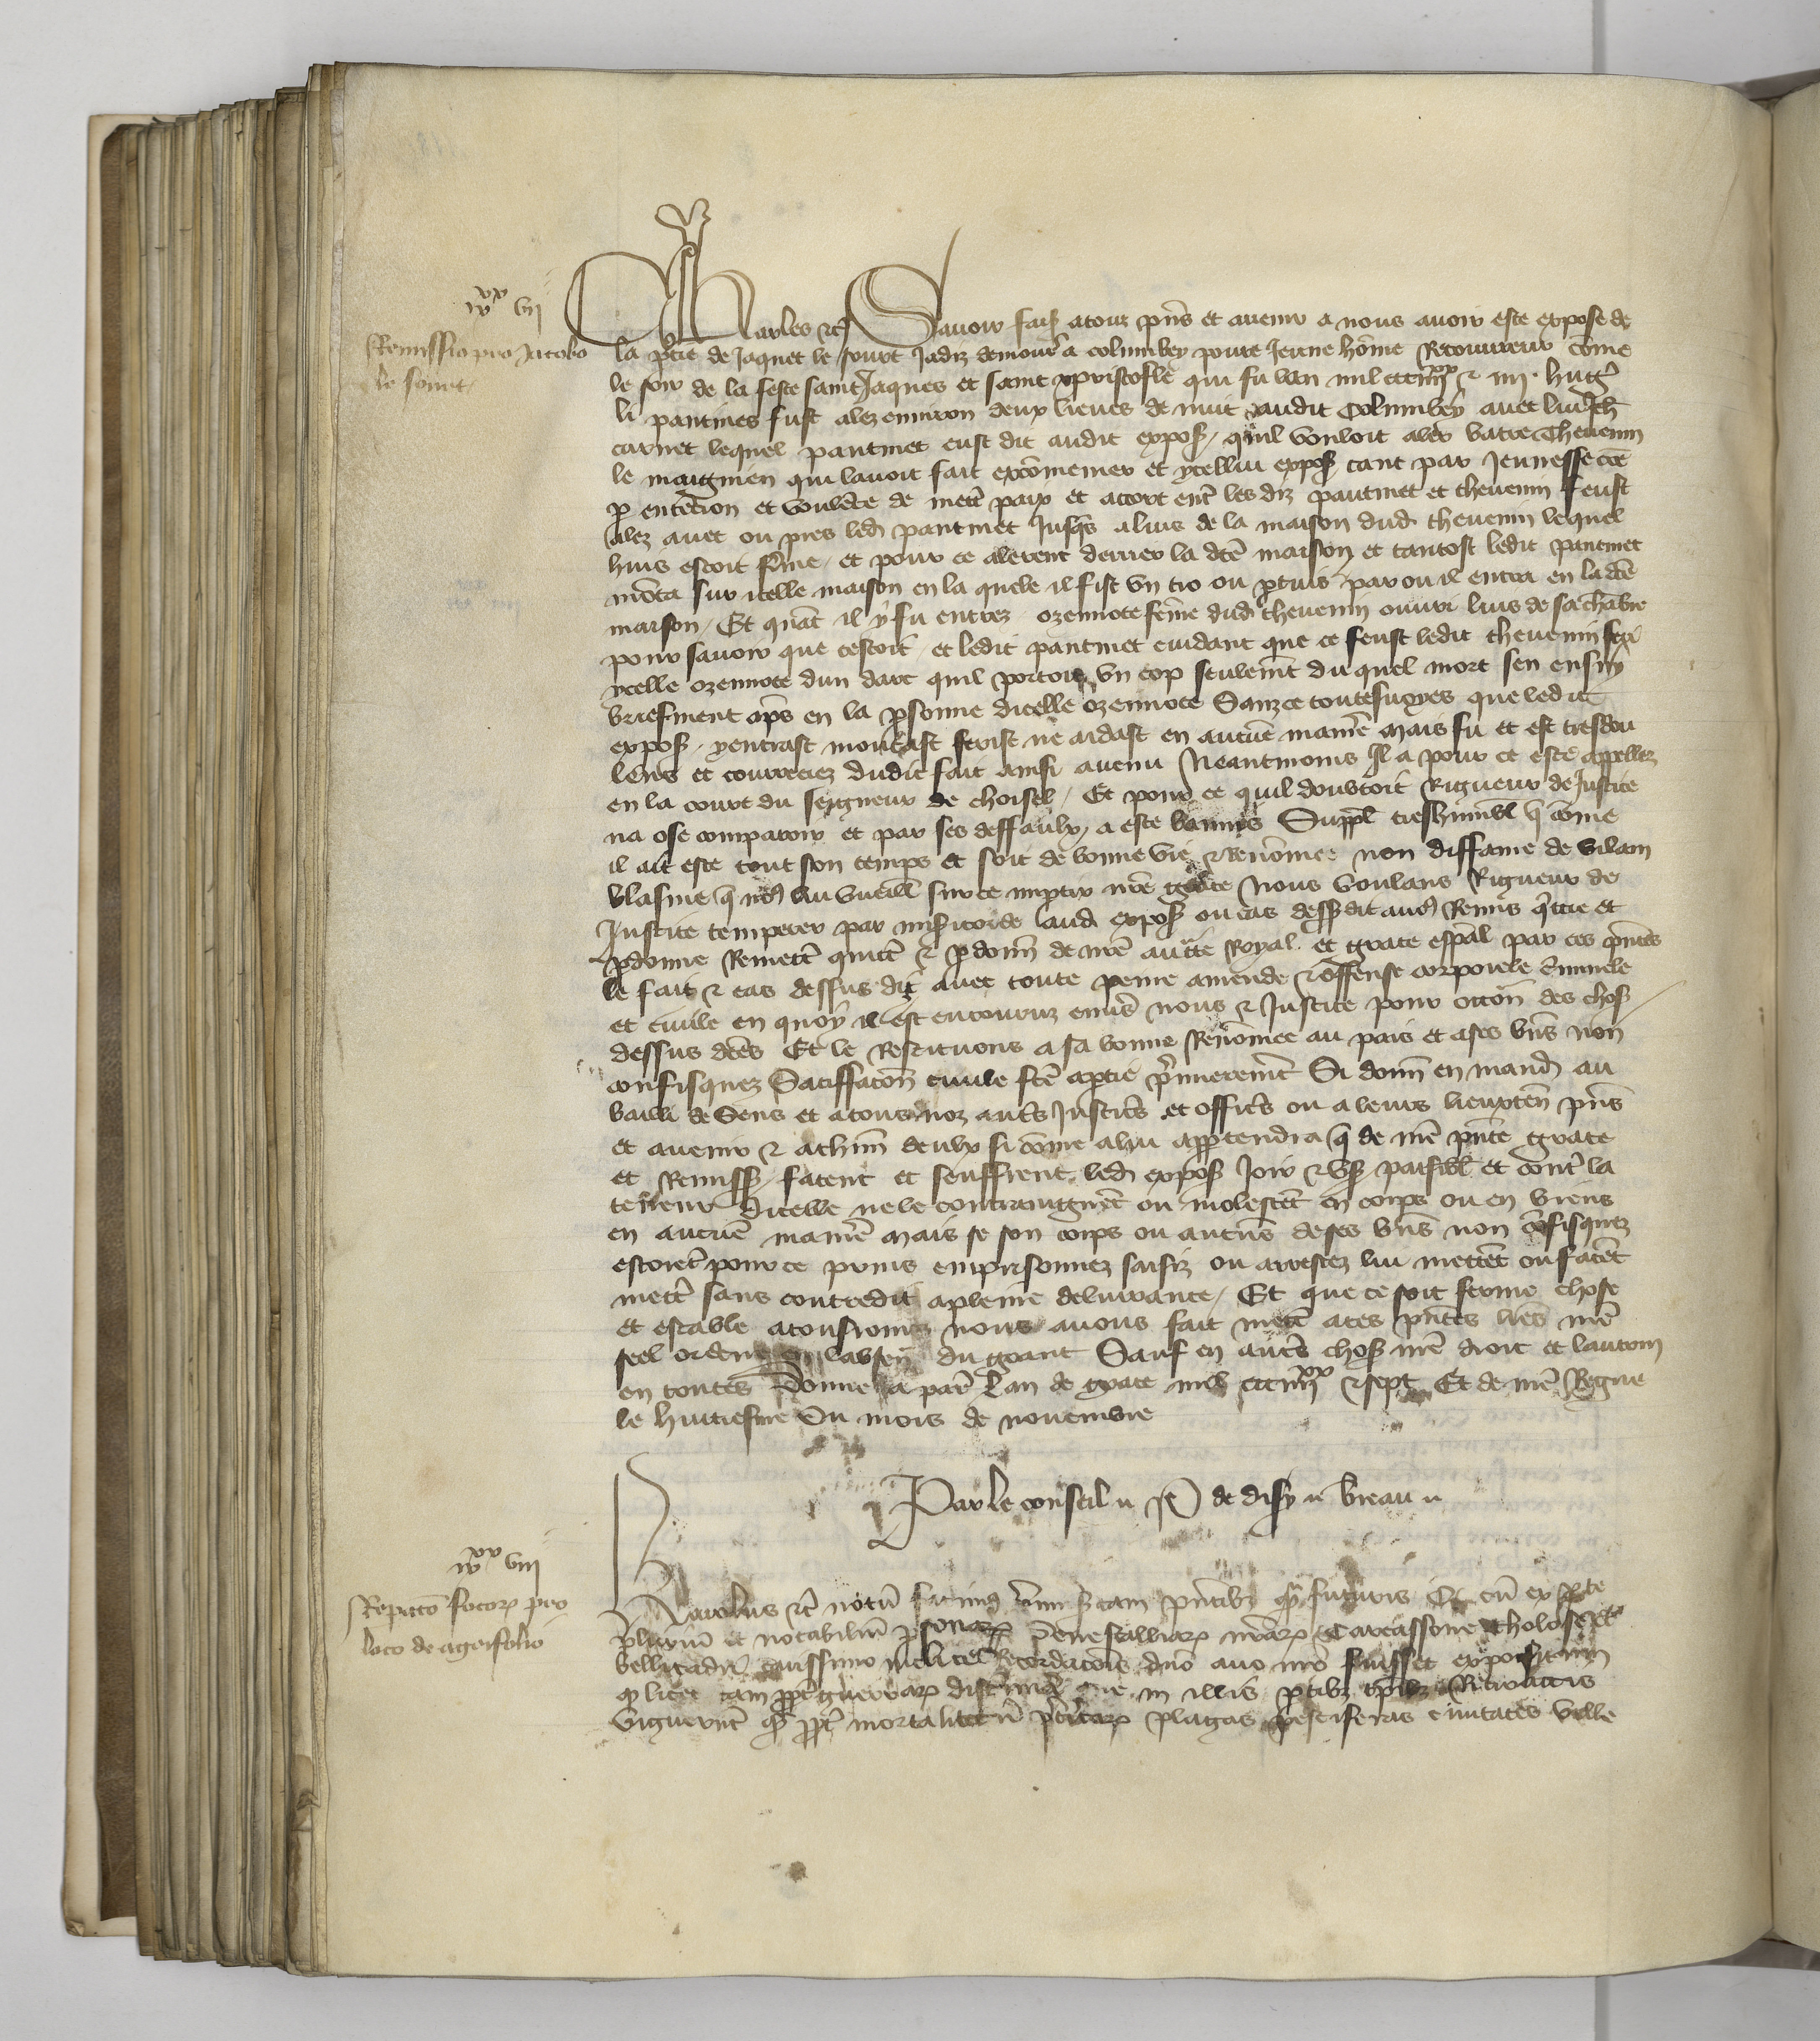 iiiixx vii
Remissio pro Jacobo
le sourt
Charles etc Savoir faiz a touz pñs et avenir a nous avoir este expose de
la ptie de Jaquet le sourt Jadiz demour a Columbey povre Jeune hõme Recouvreur cõme
le soir de la feste saint Jaques et saint xpristofle qui fu lan mil ccc iiiixx et iiii
li pantines fust alez environ deux lieues de nuit audit Columbey avec lui Jeh
carnet lequel pantinet eust dit audit expos quil vouloit aler batre Thevenin
le maignien qui lavoit fait excõmenier et ycellui expos tant par Jeunesse cõe
p entẽcion et voulẽte de mettr paix et accort entr les diz pantinet et thevenin feust
alez avec ou pres led pantinet Jusqs a luis de la maison dud thevenin lequel
huis estoit fermé et pour ce alerent derrier la dcẽ maison et tantost ledit pantinet
mõta sur icelle maison en la quele il fist un tro ou ptuis par ou il entra en la dcẽ
maison Et quãt il y fu entrez ozennote feme dud thevenin ouvri luis de sa chãbre
pour savoir que cestoit et ledit pantinet cuidant que ce feust ledit thevenin feri
ycelle ozennote dun dart quil portoit un cop seulemt du quel mort sen ensuy
briefment aps en la psonne dicelle ozennote Sanz ce toutesvoyes que ledit
expos y entrast montast ferist ne aidast en aucuẽ maniẽ mais fu et est tresdou
lens et courrociez dudit fait ainsi avenu Neantmoins Il a pour ce este appellez
en la court du seigneur de choisel Et pour ce quil doubtoit Rigueur de Justice
na ose comparoir et par ses deffaulx a este bannis Suppl treshumbl q cõme
il ait este tout son temps et soit de bonne vie et Renõmee non diffame de vilain
blasme q nous lui vueill sur ce impartir nrẽ grace Nous voulans Rigueur de
Justice temperer par misericorde laud expos ou cas dessusdit avõs Remis qttie et
pdonne Remettr quictr et pdonn de nrẽ auctte Royal et grace espal par ces pñtes
le fait et cas dessus dit avec toute peine amende et offense corporele criminele
et civile en quoy il est encouruz envs nous et Justice pour occõn des chos
dessus dcẽs Et le Restituons a sa bonne Renõmee au pais et a ses bns non
confisquez Satiffacõn civile fcẽ a ptie p̃mierement Si donn en mand au
bailli de Sens et a tous noz autrs Justicrs et officrs ou a leurs lieuxten pñs
et avenir et a chun deulx si cõme a lui apptendra q de nrẽ pñte grace
et Remiss facent et seuffrent led expos Joir et us paisibl et contr la
teneur dicelle ne le contraignẽt ou molestẽt en corps ou en biens
en aucuẽ maniẽ mais se son corps ou aucuns de ses bns non cõfisquez
estoiẽt pour ce prins emprisonnez saisiz ou arrestez lui mettẽt ou facẽt
mettr sans contredit a pleine delivrance Et que ce soit ferme chose
et estable a tousjours nous avons fait mettr a ces pñtes lrẽs nrẽ
seel ordene en labsenc du grant Sauf en autrs chos nrẽ droit et lautrui
en toutes Donne a paris Lan de grace mil ccc iiiixx et sept Et de nrẽ Regne
le huitiesme Ou mois de novembre
Par le conseil de disy breau
iiiixx viii
Repacõ focor pro
loco de agrifolio
Karolus etc notũ facimus univsis tam pñtibz q futuris Q cũ ex pte
plurium et notabiliũ psonar Senescalliar nrar Carcassone tholose et
bellicadri carissimo dno avo nro fuisset expositum
q licet tam ppt guerrar que in illis ptibz
viguerũt q ppt mortalitatũ plagas pestiferas civitates ville